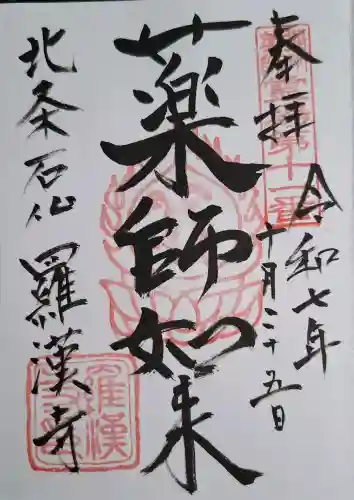 奉拝
令和七年
十月二十五日
薬師如来
北条石仏
羅漢寺